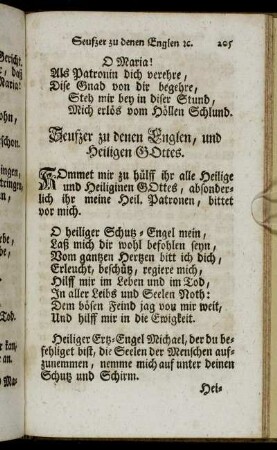 Seufzer zu denen Englen ꝛc. 205
O Maria!
Als Patronin dich verehre,
Dise Gnad von dir begehre,
Steh mir bey in diser Stund,
Mich erlös vom Höllen Schlund.
Seufzer zu denen Englen, und
Heiligen GOttes.
KOmmet mir zu hülff ihr alle Heilige
und Heiliginen GOttes, absonder-
lich ihr meine Heil. Patronen, bittet
vor mich.
O heiliger Schutz-Engel mein,
Laß mich dir wohl befohlen seyn,
Vom gantzen Hertzen bitt ich dich,
Erleucht, beschütz, regiere mich,
Hilff mir im Leben und im Tod,
In aller Leibs und Seelen Noth:
Dem bösen Feind jag von mir weit,
Und hilff mir in die Ewigkeit.
Heiliger Ertz-Engel Michael, der du be-
fehliget bist, die Seelen der Menschen auf-
zunemmen, nemme mich auf unter deinen
Schutz und Schirm.
Hei-